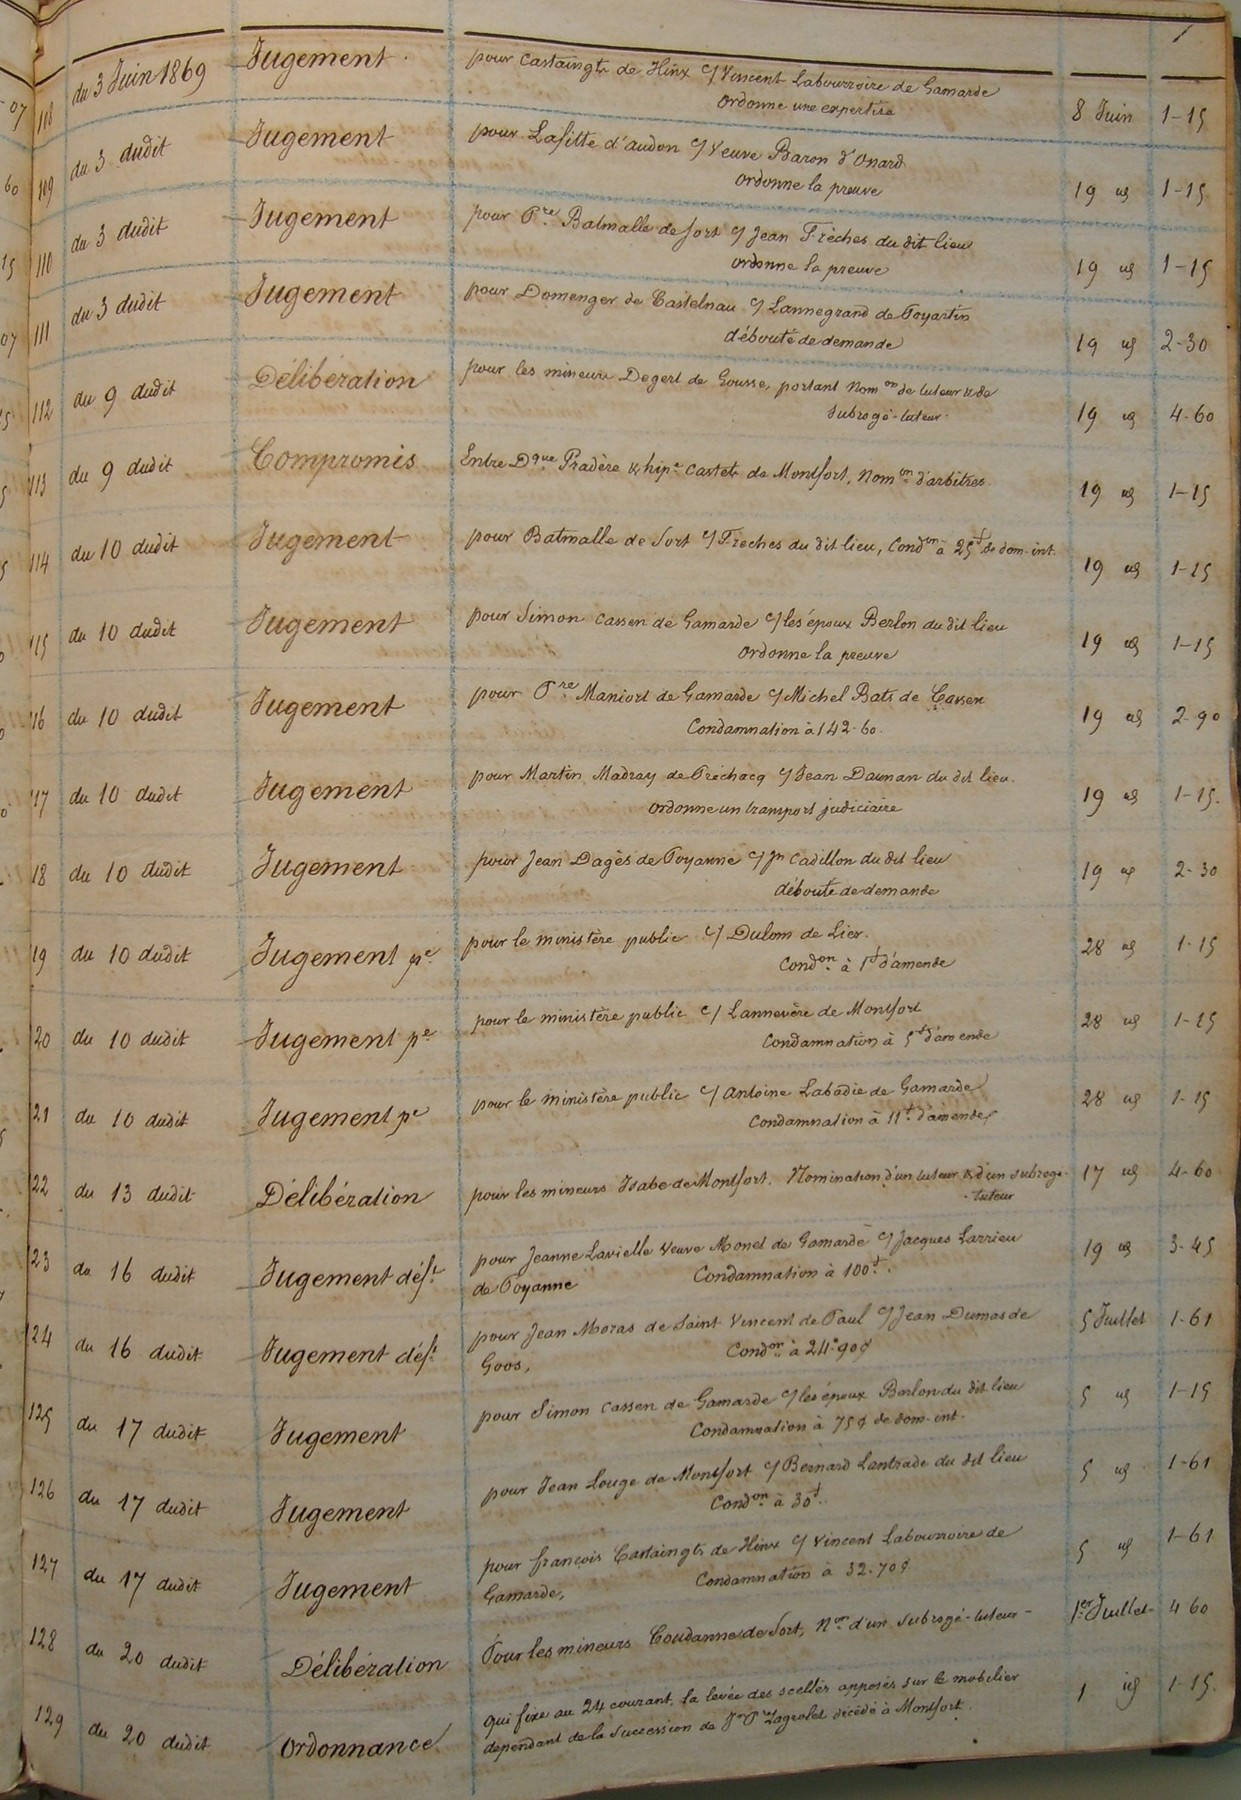 118 du 3 Juin 1869 Jugement pour Castaingts de Hinx c/ Vincent Labourroire de Gamarde
ordonne une expertise 8 Juin 1-15
109 du 3 dudit Jugement pour Lafitte d'audon c/ Veuve Baron d'Onard
ordonne la preuve 19 id 1-15
110 du 3 dudit Jugement pour Pre Batmalle de Sort c/ Jean Frèches du dit lieu
ordonne la preuve 19 id 1-15
111 du 3 dudit Jugement pour Domenger de Castelnau c/ Lannegrand de Poyartin
déboute de demande 19 id 2-30
112 du 9 dudit Délibération pour les mineurs Degert de Gousse, portant Nomon de tuteur & de
subrogé-tuteur. 19 id 4-60
113 du 9 dudit Compromis Entre Dque Pradère & hipe Castets de Montfort, Nomon d'arbitres. 19 id 1-15
114 du 10 dudit Jugement pour Batmalle de Sort c/ Freches du dit lieu, Condon à 25f de dom-int. 19 id 1-15
115 du 10 dudit Jugement pour Simon Cassen de Gamarde c/ les époux Berlon du dit lieu
ordonne la preuve 19 id 1-15
116 du 10 dudit Jugement pour Pre Maniort de Gamarde c/ Michel Bats de Cassen
Condamnation à 142-60. 19 id 2-90
117 du 10 dudit Jugement pour Martin Madray de Préchacq c/ Jean Daunan du dit lieu.
ordonne un transport judiciaire 19 id 1-15.
18 du 10 dudit Jugement pour Jean Dagès de Poyanne c/ Jn Cadillon du dit lieu
déboute de demande 19 id 2-30
19 du 10 dudit Jugement pe pour le ministère public c/ Dulom de Lier.
Condon à 1f d'amende 28 id 1-15
20 du 10 dudit Jugement pe pour le ministère public c/ Lannevère de Montfort
Condamnation à 5f d'amende 28 id 1-15
21 du 10 dudit Jugement pe pour le ministère public c/ Antoine Labadie de Gamarde
Condamnation à 11f d'amende 28 id 1-15
22 du 13 dudit Délibération pour les mineurs Isabe de Montfort. Nomination d'un tuteur & d'un subrogé-
-tuteur 17 id 4-60
23 du 16 dudit Jugement déft pour Jeanne Lavielle Veuve Monet de Gamarde c/ Jacques Larrieu
de Poyanne Condamnation à 100f. 19 id 3-45
124 du 16 dudit Jugement déft pour Jean Moras de Saint Vincent de Paul c/ Jean Dumas de
Goos, Condon à 24f90c 5 Juillet 1-61
125 du 17 dudit Jugement pour Simon Cassen de Gamarde c/ les époux Berlon du dit lieu
Condamnation à 75c de dom-int. 5 id 1-15
126 du 17 dudit Jugement pour Jean Louge de Montfort c/ Bernard Lantrade du dit lieu
Condon à 30f. 5 id 1-61
127 du 17 dudit Jugement pour françois Castaingts de Hinx c/ Vincent Labourroire de
Gamarde, Condamnation à 32-70c 5 id 1-61
128 du 20 dudit Délibération Pour les mineurs Coudanne de Sort, Non d'un subrogé-tuteur- 1er Juillet- 4-60
129 du 20 dudit Ordonnance qui fixe au 24 courant, la levée des scellés apposés sur le mobilier
dépendant de la succession de Jn Pre Lagrolet décédé à Montfort. 1 id 1-15.